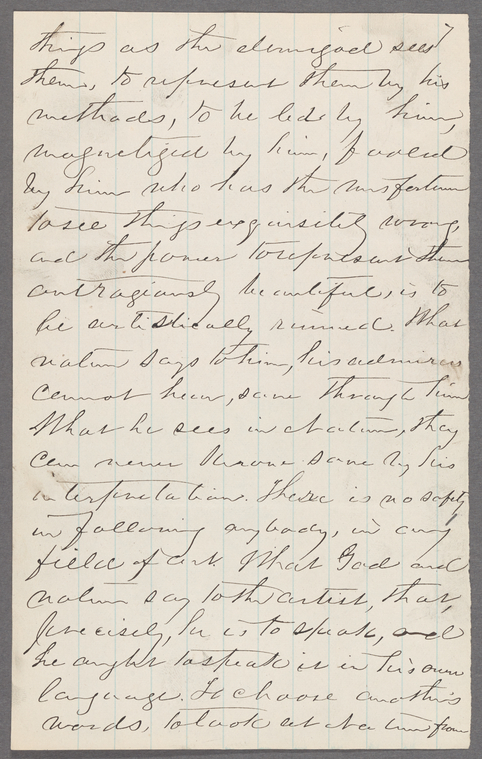 7
things as the demigod sees
them, to represent them by his
methods, to be led by him,
magnetized by him, fooled
by him who has the misfortune
to see things exquisitely wrong,
and the power to represent them
outragiously beautiful, is to
be artistically ruined. What
nature says to him, his admirers
cannot hear, save through him
What he sees in Nature, they
can never know save by his
interpretation. There is no safety
in following anybody, in any
field of art. What God and
nature say to the artist, that,
precisely, he is to speak, and
he ought to speak it in his own
language. To choose another's
words, to look at Nature from